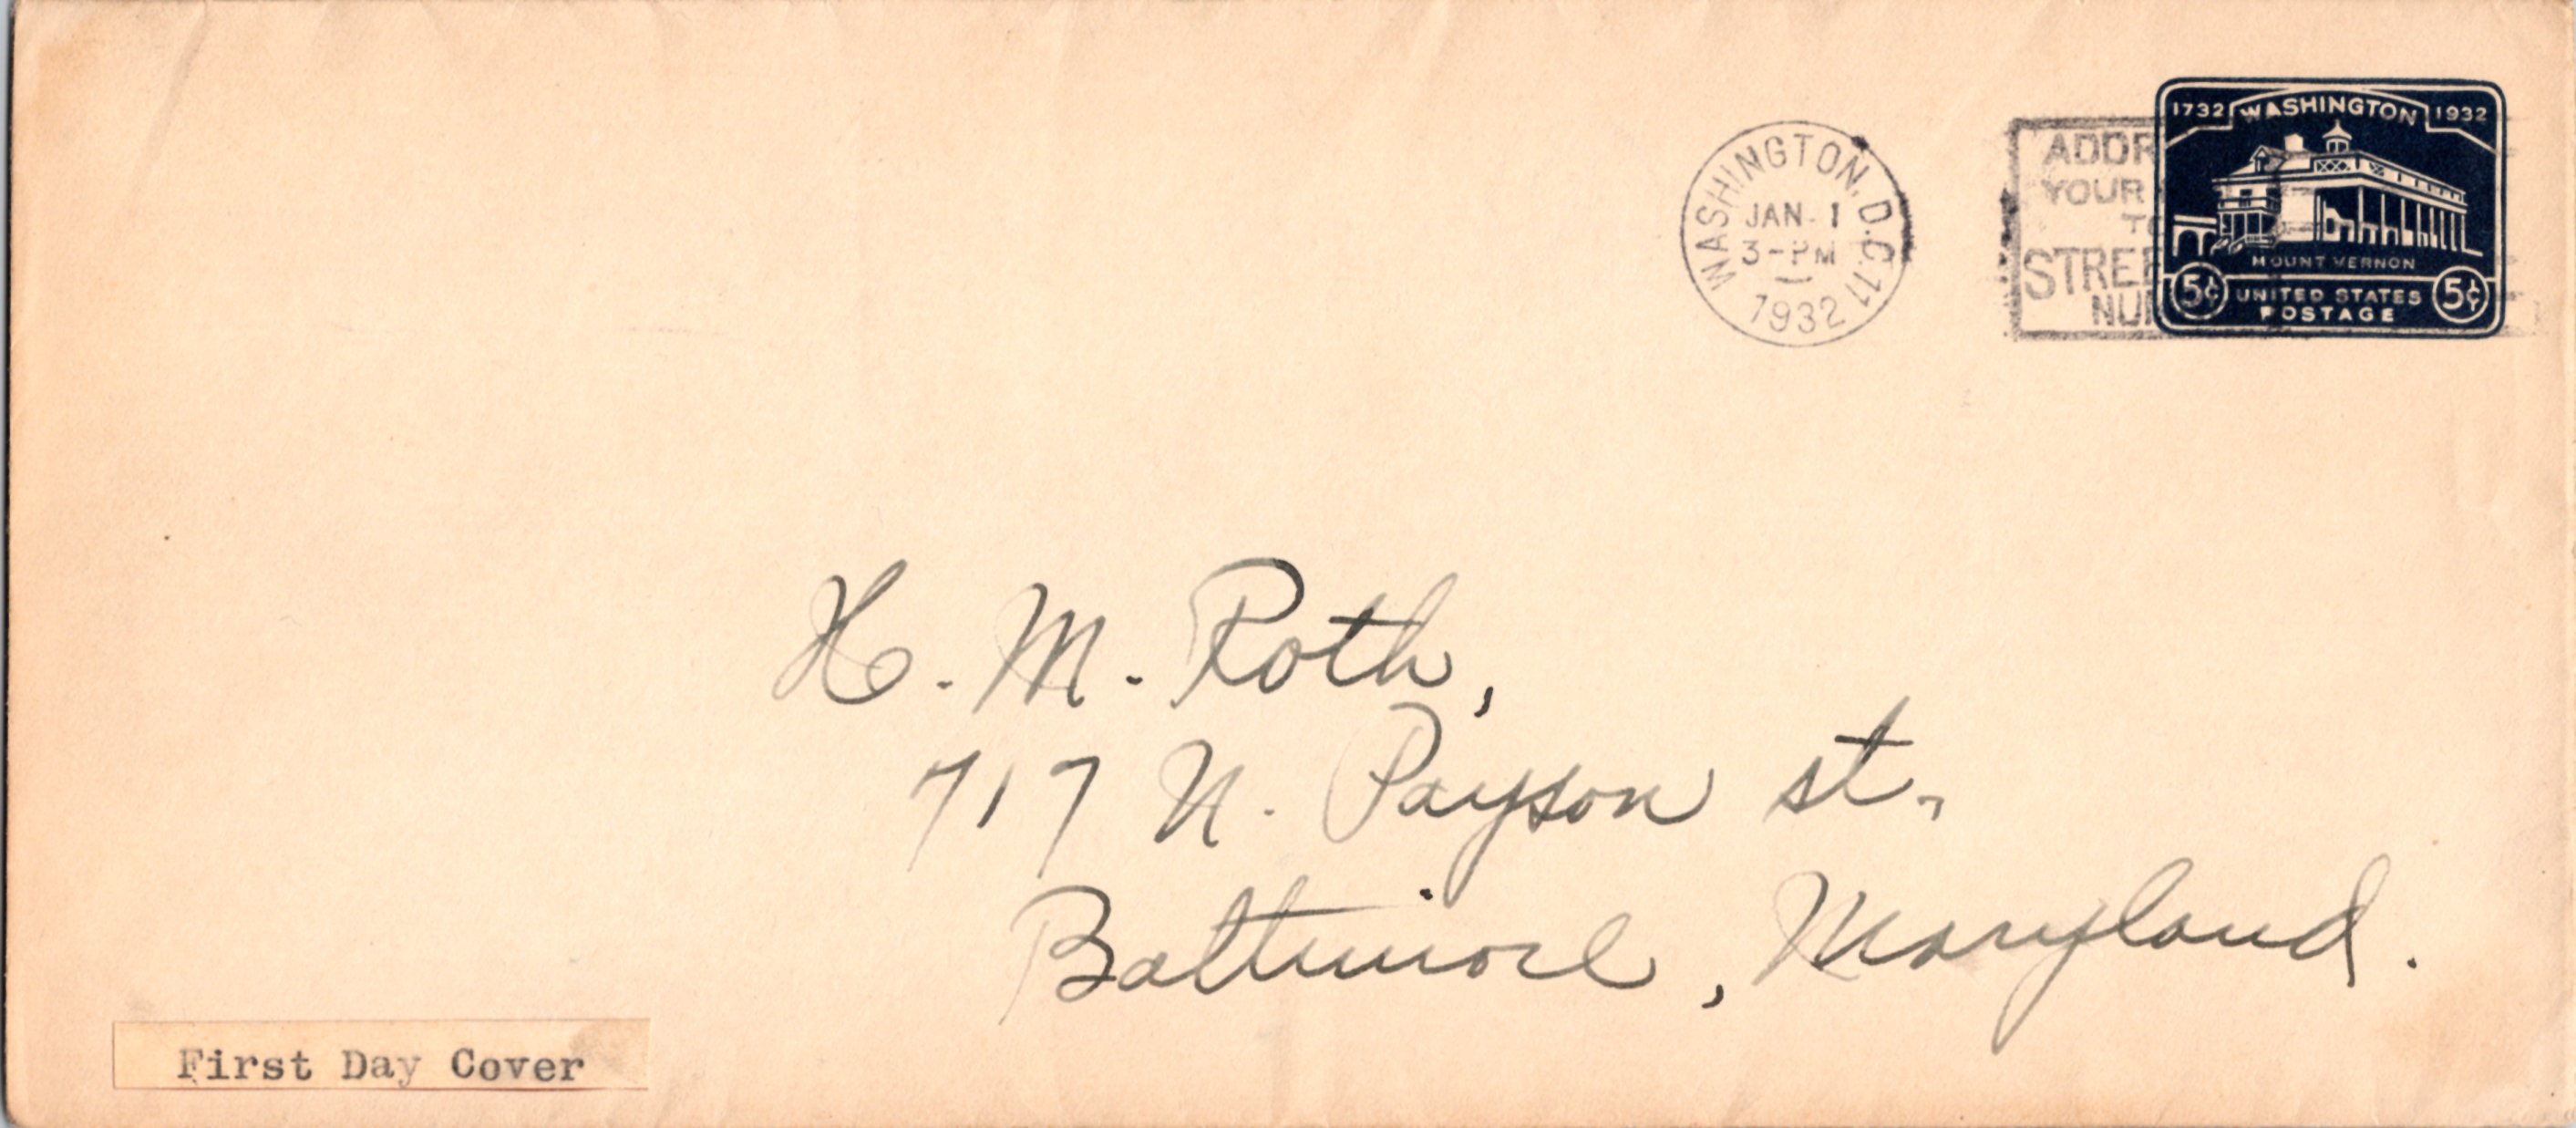 WASHINGTON, D.C. 11
JAN 1
3-PM
1932
ADDR
YOUR
TO
STREE
NU
1732 WASHINGTON 1932
MOUNT VERNON
5¢ UNITED STATES 5¢
POSTAGE
H. M. Roth,
717 N. Payson st.
Baltimore, Maryland.
First Day Cover